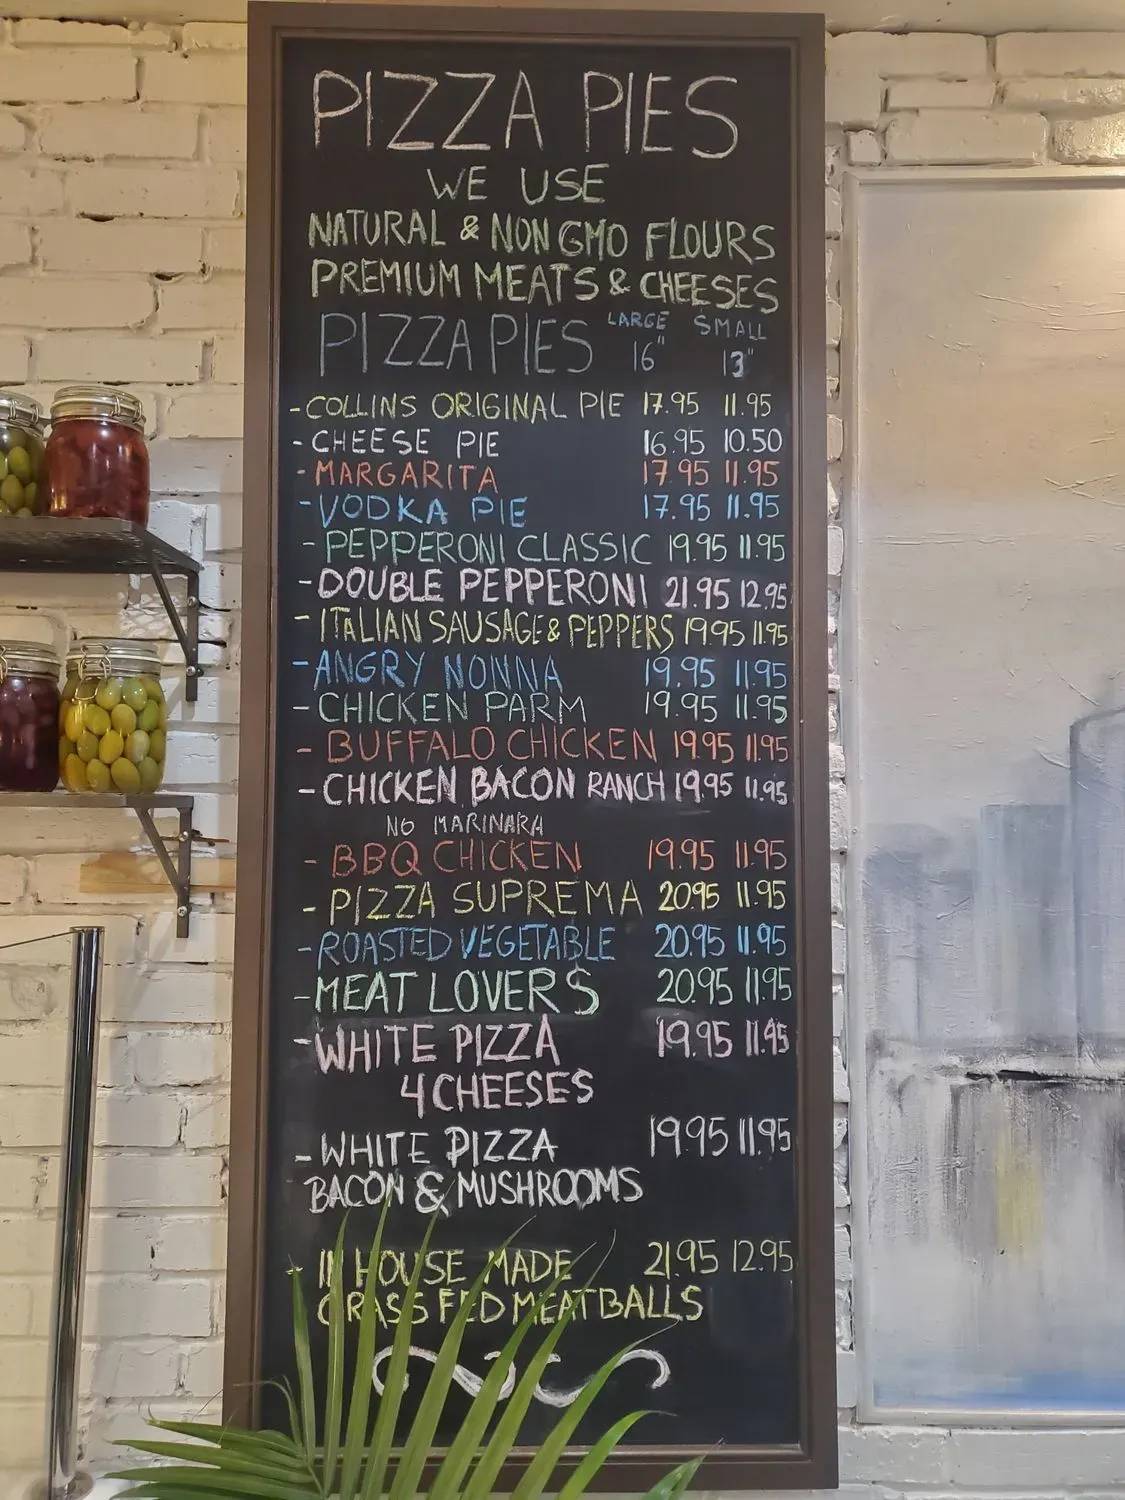 PIZZA PIES
WE USE
NATURAL & NON GMO FLOURS
PREMIUM MEATS & CHEESES
PIZZA PIES LARGE 16" SMALL 13"
- COLLINS ORIGINAL PIE 17.95 11.95
- CHEESE PIE 16.95 10.50
- MARGARITA 17.95 11.95
- VODKA PIE 17.95 11.95
- PEPPERONI CLASSIC 19.95 11.95
- DOUBLE PEPPERONI 21.95 12.95
- ITALIAN SAUSAGE & PEPPERS 19.95 11.95
- ANGRY NONNA 19.95 11.95
- CHICKEN PARM 19.95 11.95
- BUFFALO CHICKEN 19.95 11.95
- CHICKEN BACON RANCH 19.95 11.95
NO MARINARA
- BBQ CHICKEN 19.95 11.95
- PIZZA SUPREMA 20.95 11.95
- ROASTED VEGETABLE 20.95 11.95
- MEAT LOVERS 20.95 11.95
- WHITE PIZZA 19.95 11.95
4 CHEESES
- WHITE PIZZA 19.95 11.95
BACON & MUSHROOMS
- IN HOUSE MADE 21.95 12.95
GRASS FED MEATBALLS